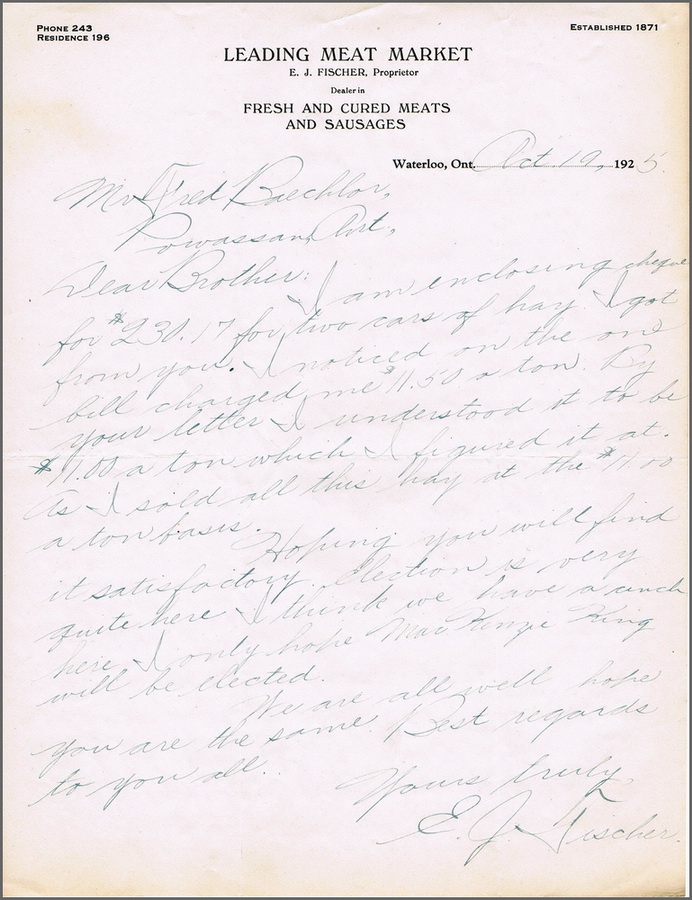 PHONE 243
RESIDENCE 196
ESTABLISHED 1871
LEADING MEAT MARKET
E. J. FISCHER, Proprietor
Dealer in
FRESH AND CURED MEATS
AND SAUSAGES
Waterloo, Ont. Oct 19, 1925.
Mr Fred Baechlor,
Powassan, Ont,
Dear Brother: I am enclosing cheque
for $230.17 for two cars of hay I got
from you. I noticed on the one
bill charged me $11.50 a ton. By
your letter I understood it to be
$11.00 a ton which I figured it at.
As I sold all this hay at the $11.00
a ton basis.
Hoping you will find
it satisfactory. Election is very
quite here I think we have a cinch
here I only hope MacKenzie King
will be elected.
We are all well hope
you are the same. Best regards
to you all.
Yours truly,
E. J. Fischer.